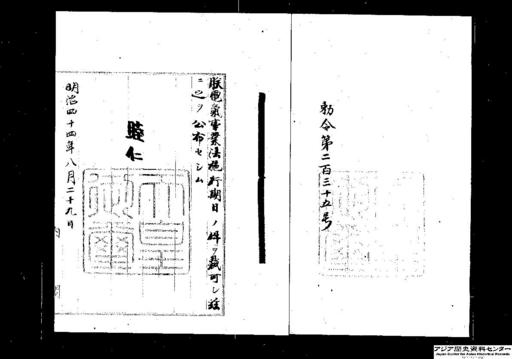 勅令第二百三十五号
朕電氣事業法施行期日ノ件ヲ裁可シ茲
ニ之ヲ公布セシム
睦仁
天皇御璽
明治四十四年八月二十九日
内閣
アジア歴史資料センター
Japan Center for Asian Historical Records